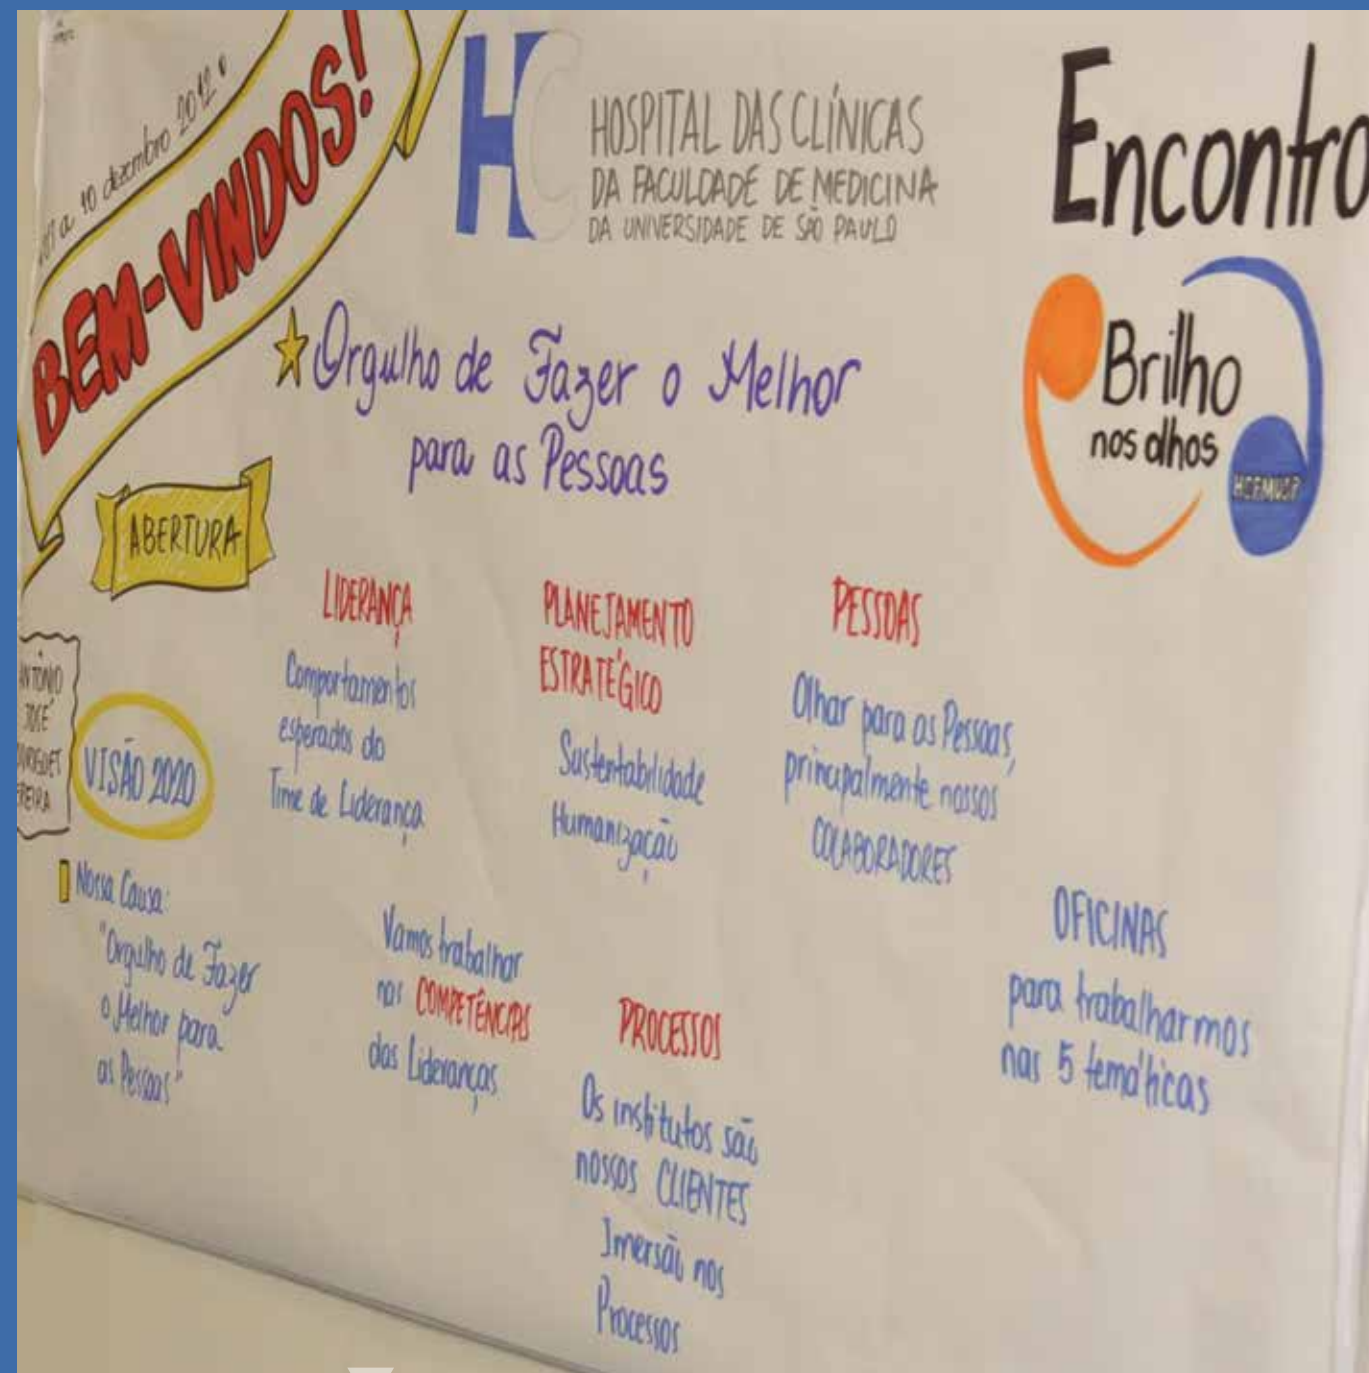 07 a 10 dezembro 2012
BEM-VINDOS!
HC
HOSPITAL DAS CLÍNICAS
DA FACULDADE DE MEDICINA
DA UNIVERSIDADE DE SÃO PAULO
Encontro
Brilho
nos olhos
HCFMUSP
Orgulho de Fazer o Melhor
para as Pessoas
ABERTURA
ANTÔNIO
JOSÉ
VISÃO 2020
Nossa Causa:
"Orgulho de Fazer
o Melhor para
as Pessoas"
LIDERANÇA
Comportamentos
esperados do
Time de Liderança
Vamos trabalhar
nas COMPETÊNCIAS
das Lideranças
PLANEJAMENTO
ESTRATÉGICO
Sustentabilidade
Humanização
PROCESSOS
Os institutos são
nossos CLIENTES
Imersão nos
Processos
PESSOAS
Olhar para as Pessoas,
principalmente nossos
COLABORADORES
OFICINAS
para trabalharmos
nas 5 temáticas